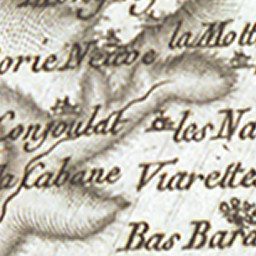 la Mott
orie Neuve
Conjoulat
les Na
la Cabane
Viarettes
Bas Bara